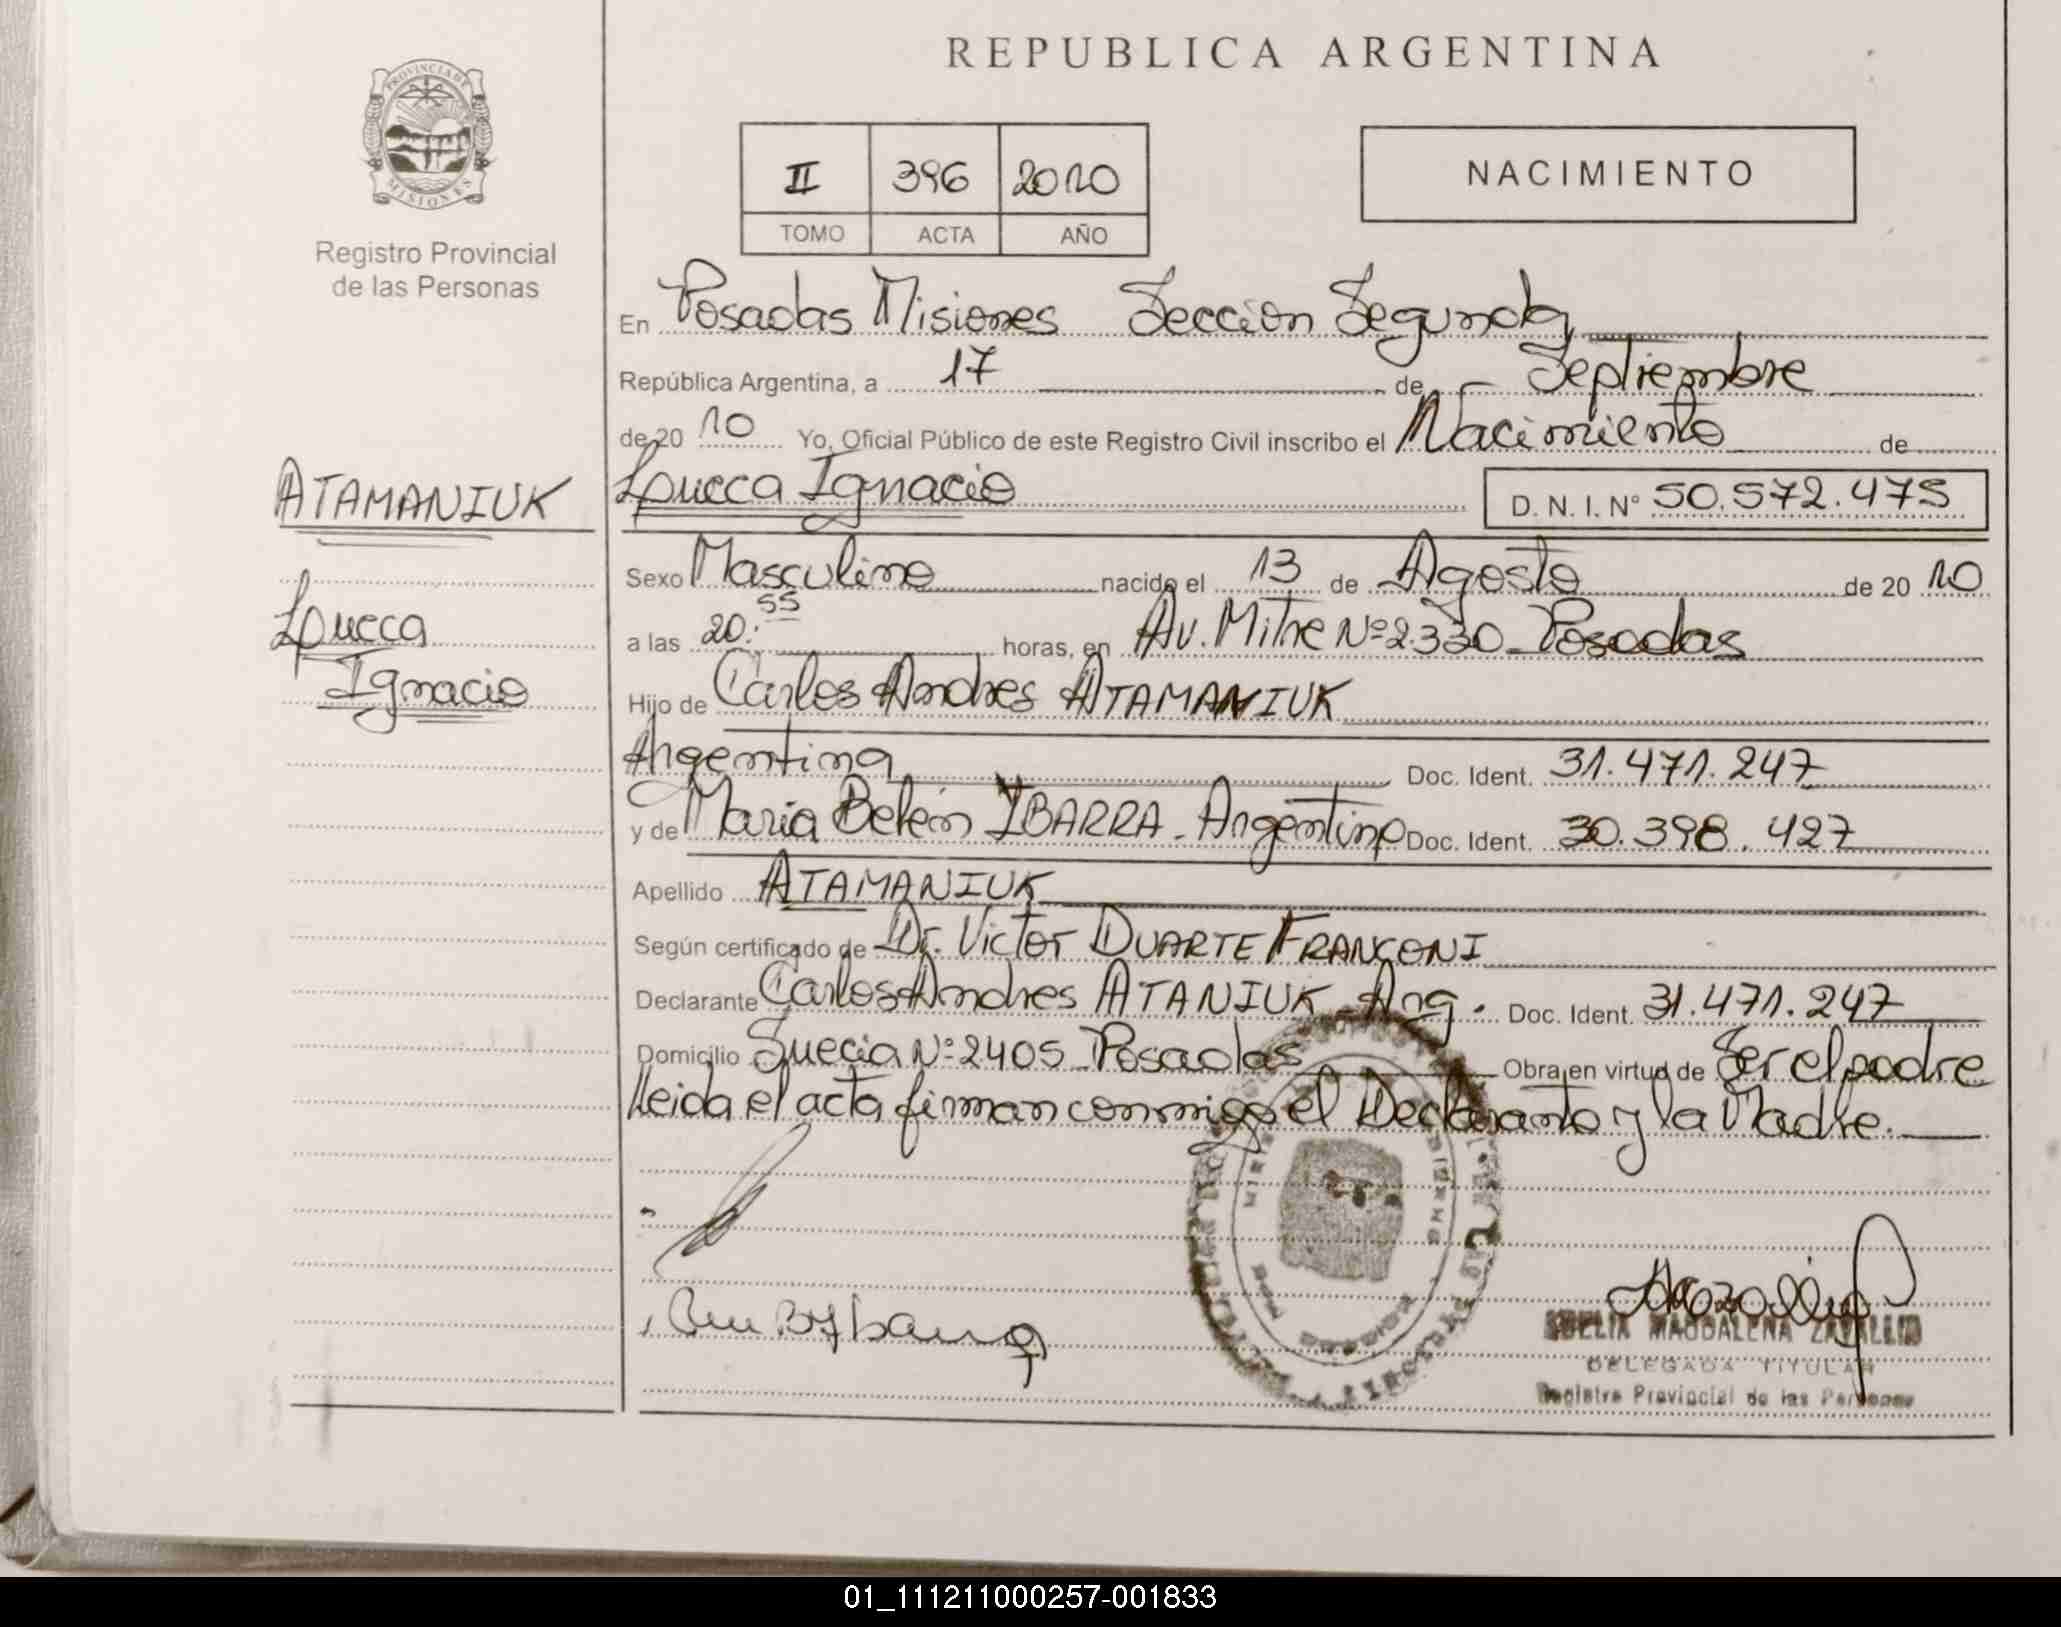 REPUBLICA ARGENTINA
PROVINCIA DE MISIONES
Registro Provincial
de las Personas
II 396 2010
TOMO ACTA AÑO
NACIMIENTO
En Posadas Misiones Sección Segunda
República Argentina, a 17 de Septiembre
de 20 10 Yo, Oficial Público de este Registro Civil inscribo el Nacimiento de
ATAMANIUK
Lucca Ignacio D. N. I. Nº 50.572.475
Sexo Masculino nacido el 13 de Agosto de 20 10
Lucca
Ignacio
a las 20:55 horas, en Av. Mitre Nº 2.330 Posadas
Hijo de Carlos Andres ATAMANIUK
Argentina Doc. Ident. 31.471.247
y de Maria Belén IBARRA - Argentina Doc. Ident. 30.398.427
Apellido ATAMANIUK
Según certificado de Dr. Victor DUARTE FRANCONI
Declarante Carlos Andres ATANIUK Arg. Doc. Ident. 31.471.247
Domicilio Suecia Nº 2405 - Posadas Obra en virtud de Ser el padre
Leida el acta firman conmigo el Declarante y la Madre.
MAGDALENA
DELEGADA TITULAR
Registro Provincial de las Personas
01_111211000257-001833